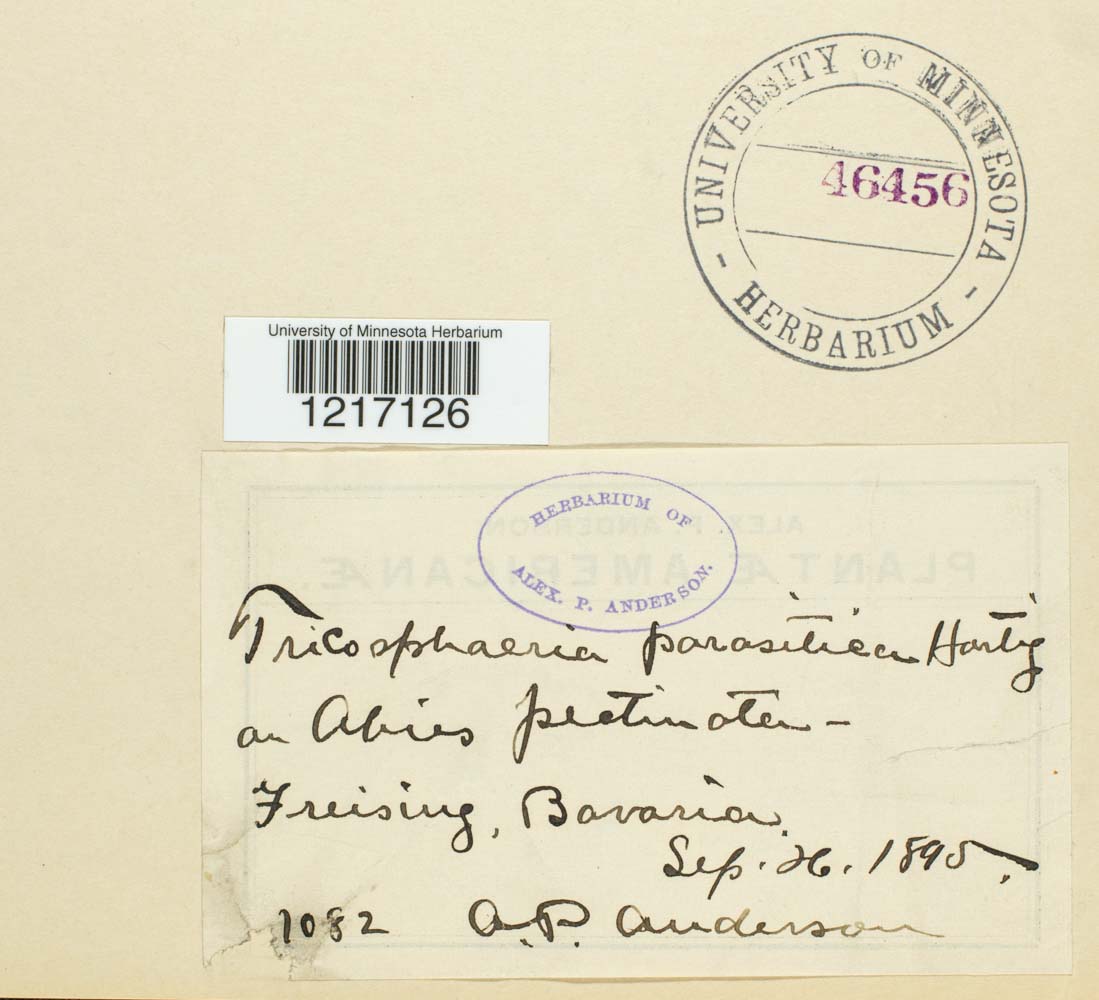 UNIVERSITY OF MINNESOTA
- HERBARIUM -
46456
University of Minnesota Herbarium
1217126
HERBARIUM OF
ALEX. P. ANDERSON.
ALEX. P. ANDERSON
PLANTÆ AMERICANÆ.
Tricosphaeria parasitica Hartig
on Abies pectinata –
Freising, Bavaria.
Sep. 26. 1895.
1082 A.P. Anderson